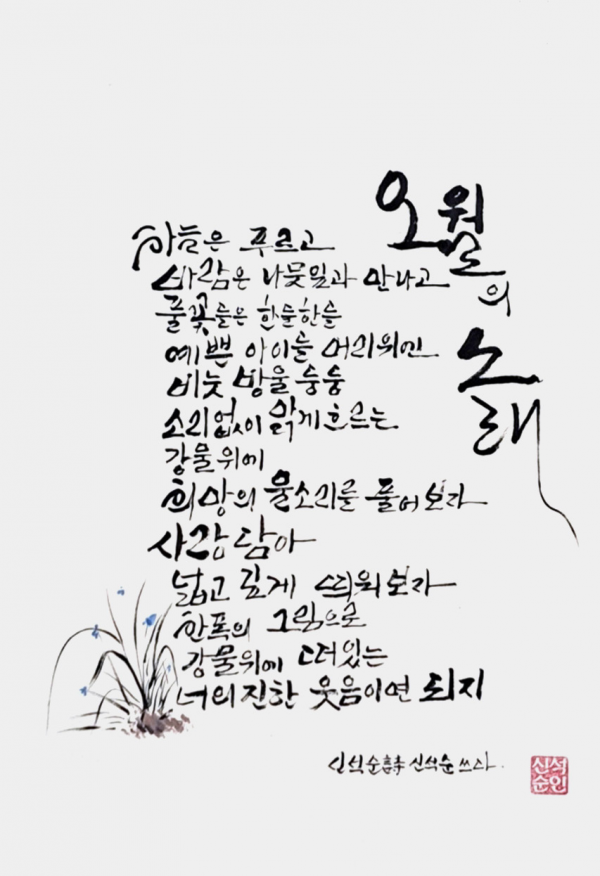 오월의
노래
하늘은 푸르고
바람은 나뭇잎과 만나고
풀꽃들은 한들한들
예쁜 아이들 머리위엔
비눗방울 둥둥
소리없이 맑게흐르는
강물위에
희망의 물소리를 풀어보자
사랑담아
넓고 깊게 띄워보자
한폭의 그림으로
강물위에 떠있는
너의진한 웃음이면 되지
신석순 신석순 쓰다.
신석
순인